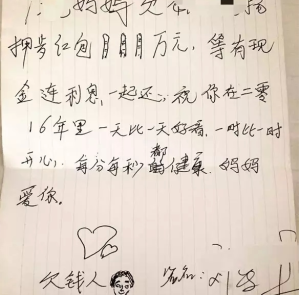 妈妈欠
押岁红包月月月万元，等有现
金连利息，一起还；祝你在二零
16年里一天比一天好看，一时比一时
开心，每分每秒都健康，妈妈
爱你。
欠钱人 签名：